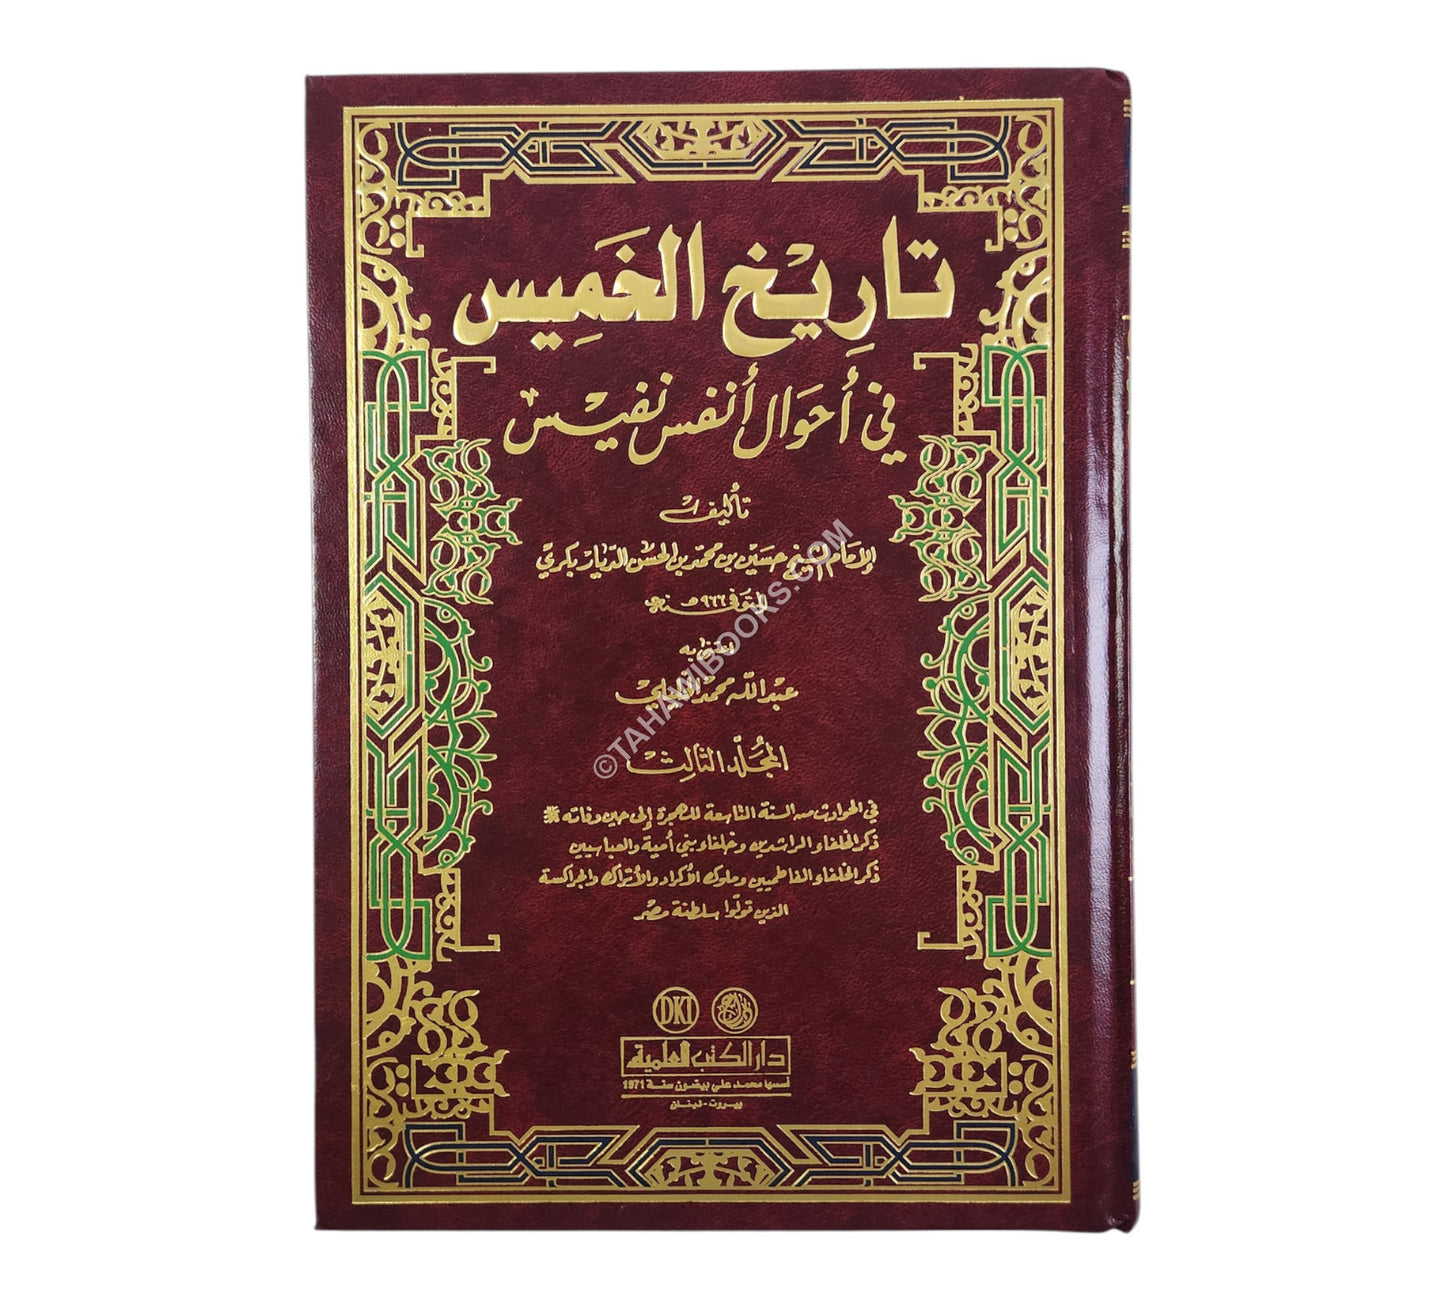 تارِيْخ الخَمِيس
في أحوَال أنفس نفيسْ
تأليف
الإمَام الشيخ حسَين بن محمّد بن الحسَن الدّيار بكريْ
المتوفى سنة ٩٦٦ هـ
اعتنى به
عبد اللّه محمد الخليلي
المجلّد الثالث
في الحوادث من السنة التاسعة للهجرة إلى حين وفاته ﷺ
ذكر الخلفاء الراشدين وخلفاء بني أمية والعباسيين
ذكر الخلفاء الفاطميين وملوك الأكراد والأتراك والجراكسة
الذين تولّوا سلطنة مصر
DKI
دار الكتب العلمية
أسسها محمد علي بيضون سنة 1971
بيروت - لبنان
©TAHAWIBOOKS.COM